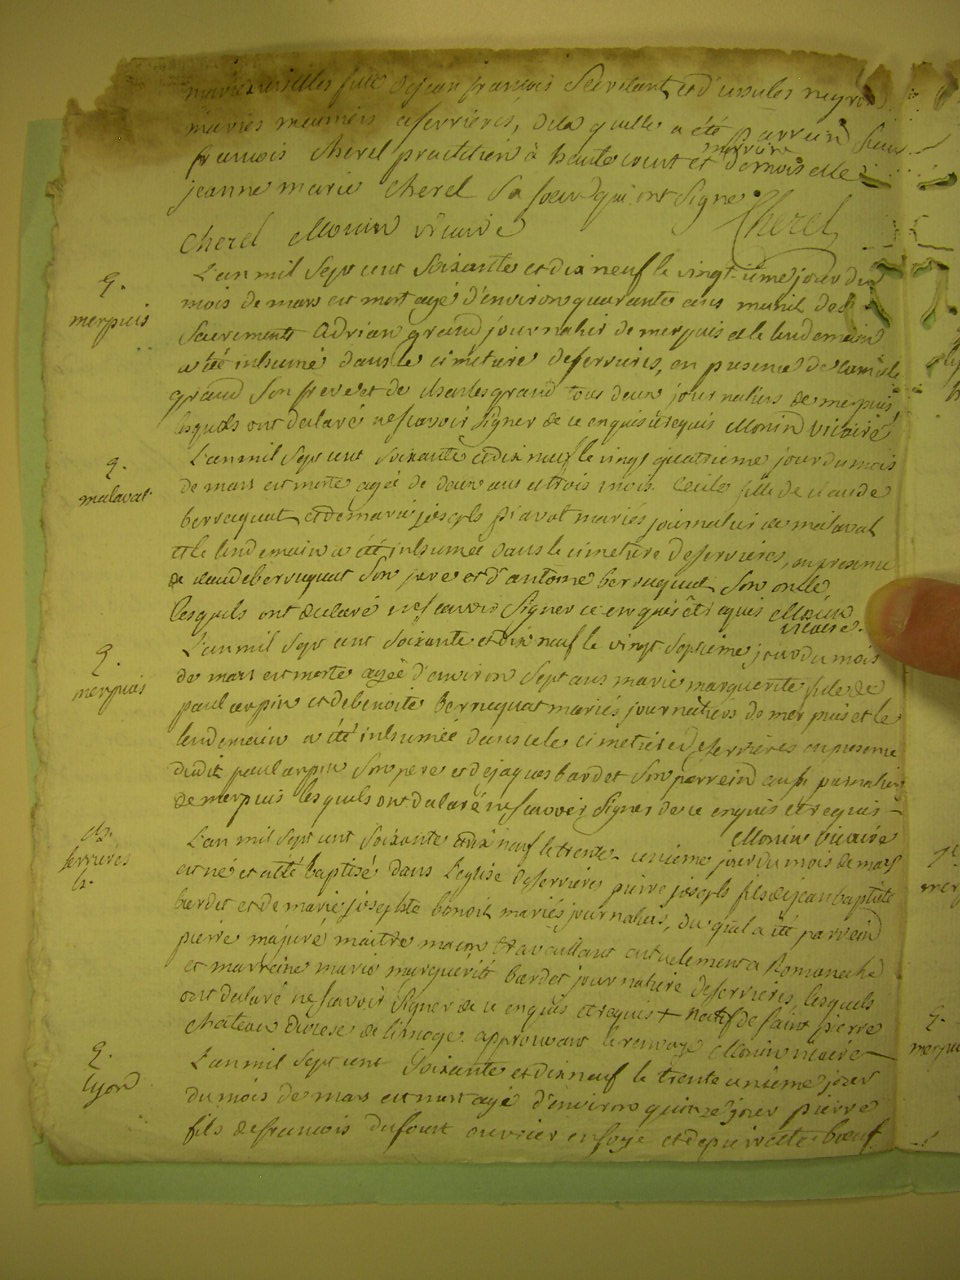 fille de jean françois Servelant et d'ursules
mariés meuniers a serrieres, de la quelle a été parrein Sieur
francois Cherel practicien à hautecourt et marreine demoiselle
jeanne marie cherel Sa soeur qui ont signe
Cherel
cherel Monin vicaire
L'an mil Sept cent Soixante et dix neuf le vingtieme jour du
mois de mars est mort agé d'environ quarante ans munil des
S.
merpuis
Sacrements Adrian grand journalier de merpuis et le lendemain
a été inhumé dans le cimetiere de serrieres, en presence de
grand Son frere et de charles grand tous deux journaliers de merpuis,
lesquels ont declaré ne scavoir signer de ce enquis et requis Monin vicaire
S.
malaval
L'an mil Sept cent Soixante et dix neuf le vingt quatrieme jour du mois
de mars est morte agée de deux ans et trois mois Cecile fille de claude
berruquat et de marie joseph piavot mariés journaliers de malaval
et le lendemain a été inhumée dans le cimetiere de serrieres, en presence
de claude berruquat Son pere et d'antoine berruquat Son oncle
lesquels ont declaré ne scavoir signer ce enquis et requis Monin
vicaire.
S.
merpuis
L'an mil Sept cent Soixante et dix neuf le vingt Septieme jour du mois
de mars est morte agée d'environ Sept ans marie marguerite fille de
paul arpin et de benoite Berruquat mariés journaliers de merpuis et le
lendemain a été inhumée dans le cimetiere de serrieres en presence
dudit paul arpin Son pere et de jaques bardet Son parrein aussi journalier
de merpuis lesquels ont declaré ne scavoir signer de ce enquis et requis
Monin vicaire
serrieres
b.
L'an mil Sept cent Soixante et dix neuf le trente unieme jour du mois de mars
est né et a été baptisé dans l'eglise de serrieres pierre joseph fils de jean baptiste
bardet et de marie josephte benoit mariés journaliers, du quel a été parrein
pierre majuré maitre maçon travaillant actuelement a Romaneche
et marreine marie marguerite bardet journaliere de serrieres, lesquels
ont declaré ne scavoir signer de ce enquis et requis + natif de saint pierre
chateau diocese de limoge approuvant le renvoye Monin vicaire
S.
lyon
L'an mil Sept cent Soixante et dix neuf le trente unieme jour
du mois de mars est mort agé d'environ quinze jour pierre
fils de francois dufour ouvrier en soye et de pierrette boeuf